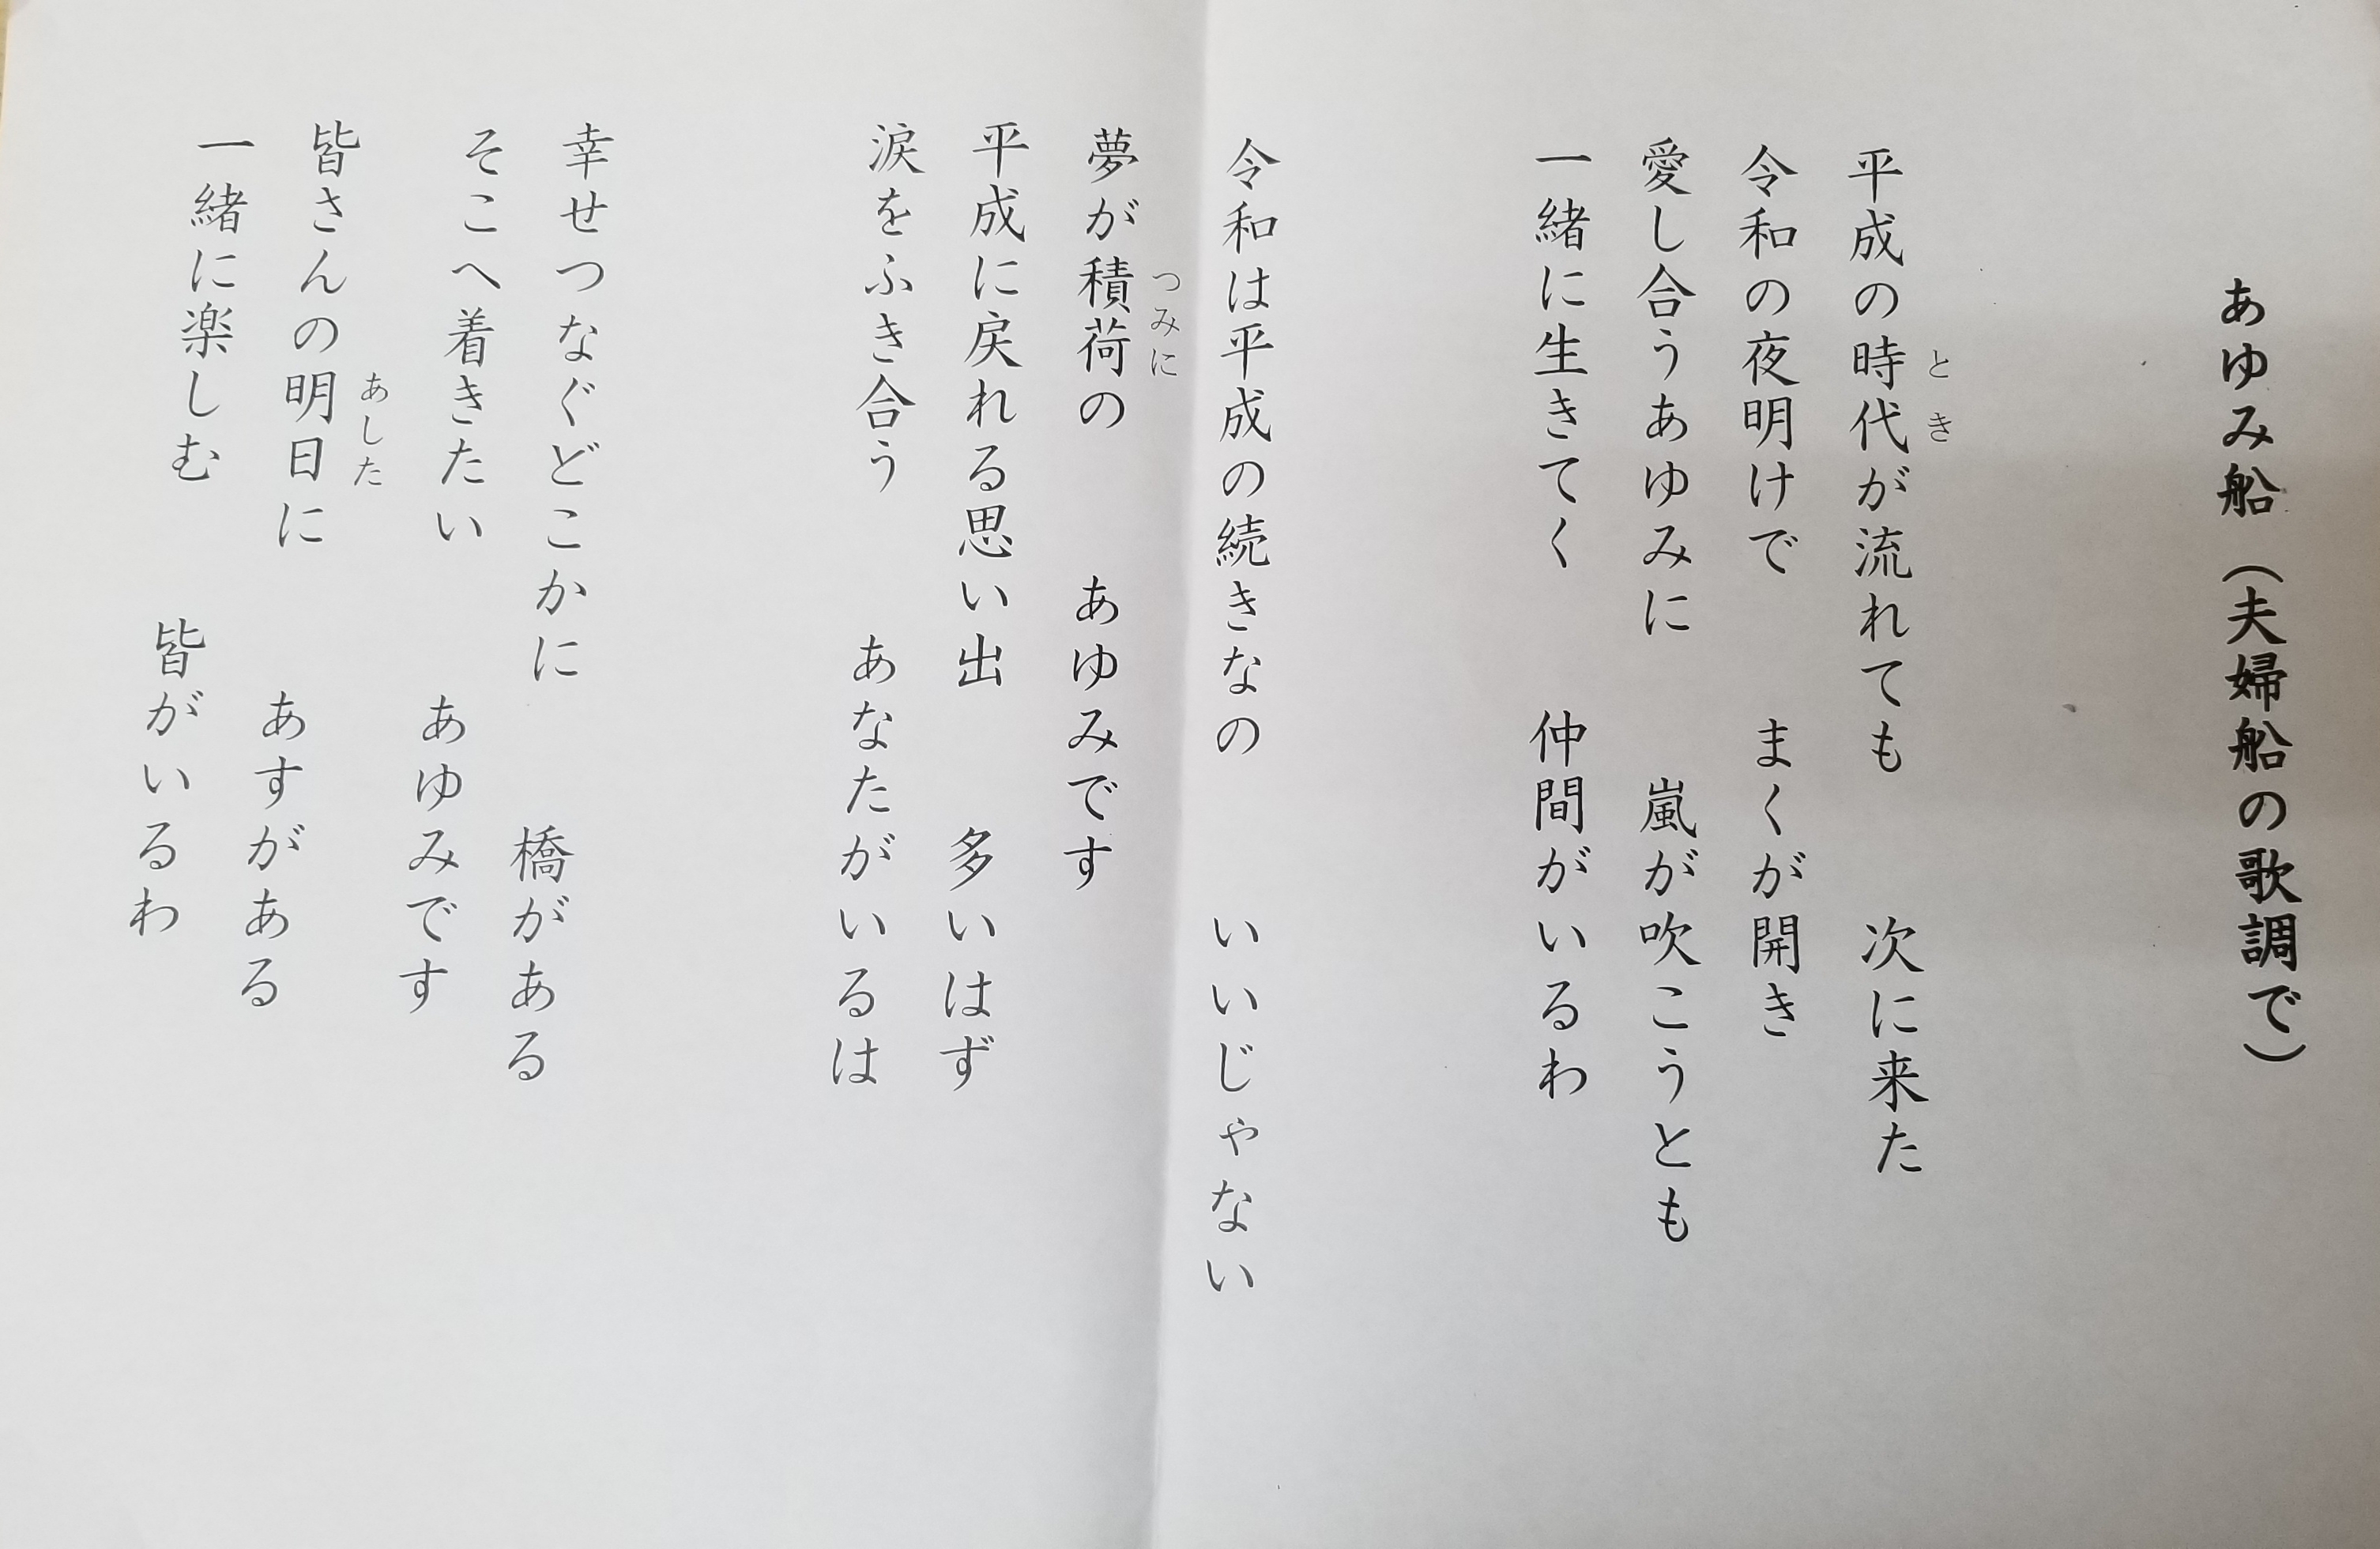 あゆみ船（夫婦船の歌調で）
平成の時代が流れても　次に来た
とき
令和の夜明けで　まくが開き
愛し合うあゆみに　嵐が吹こうとも
一緒に生きてく　仲間がいるわ
令和は平成の続きなの　いいじゃない
夢が積荷の　あゆみです
つみに
平成に戻れる思い出　多いはず
涙をふき合う　あなたがいるは
幸せつなぐどこかに　橋がある
そこへ着きたい　あゆみです
皆さんの明日に　あすがある
あした
一緒に楽しむ　皆がいるわ